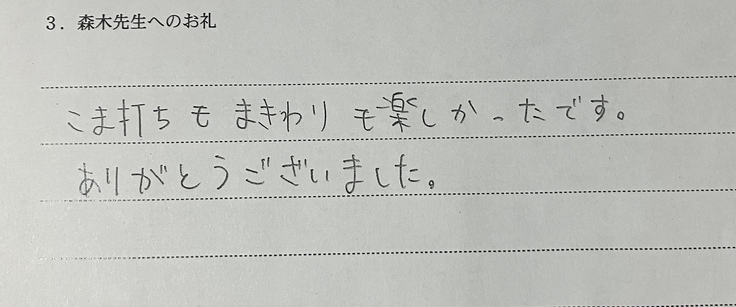 3．森木先生へのお礼
こま打ちもまきわりも楽しかったです。
ありがとうございました。